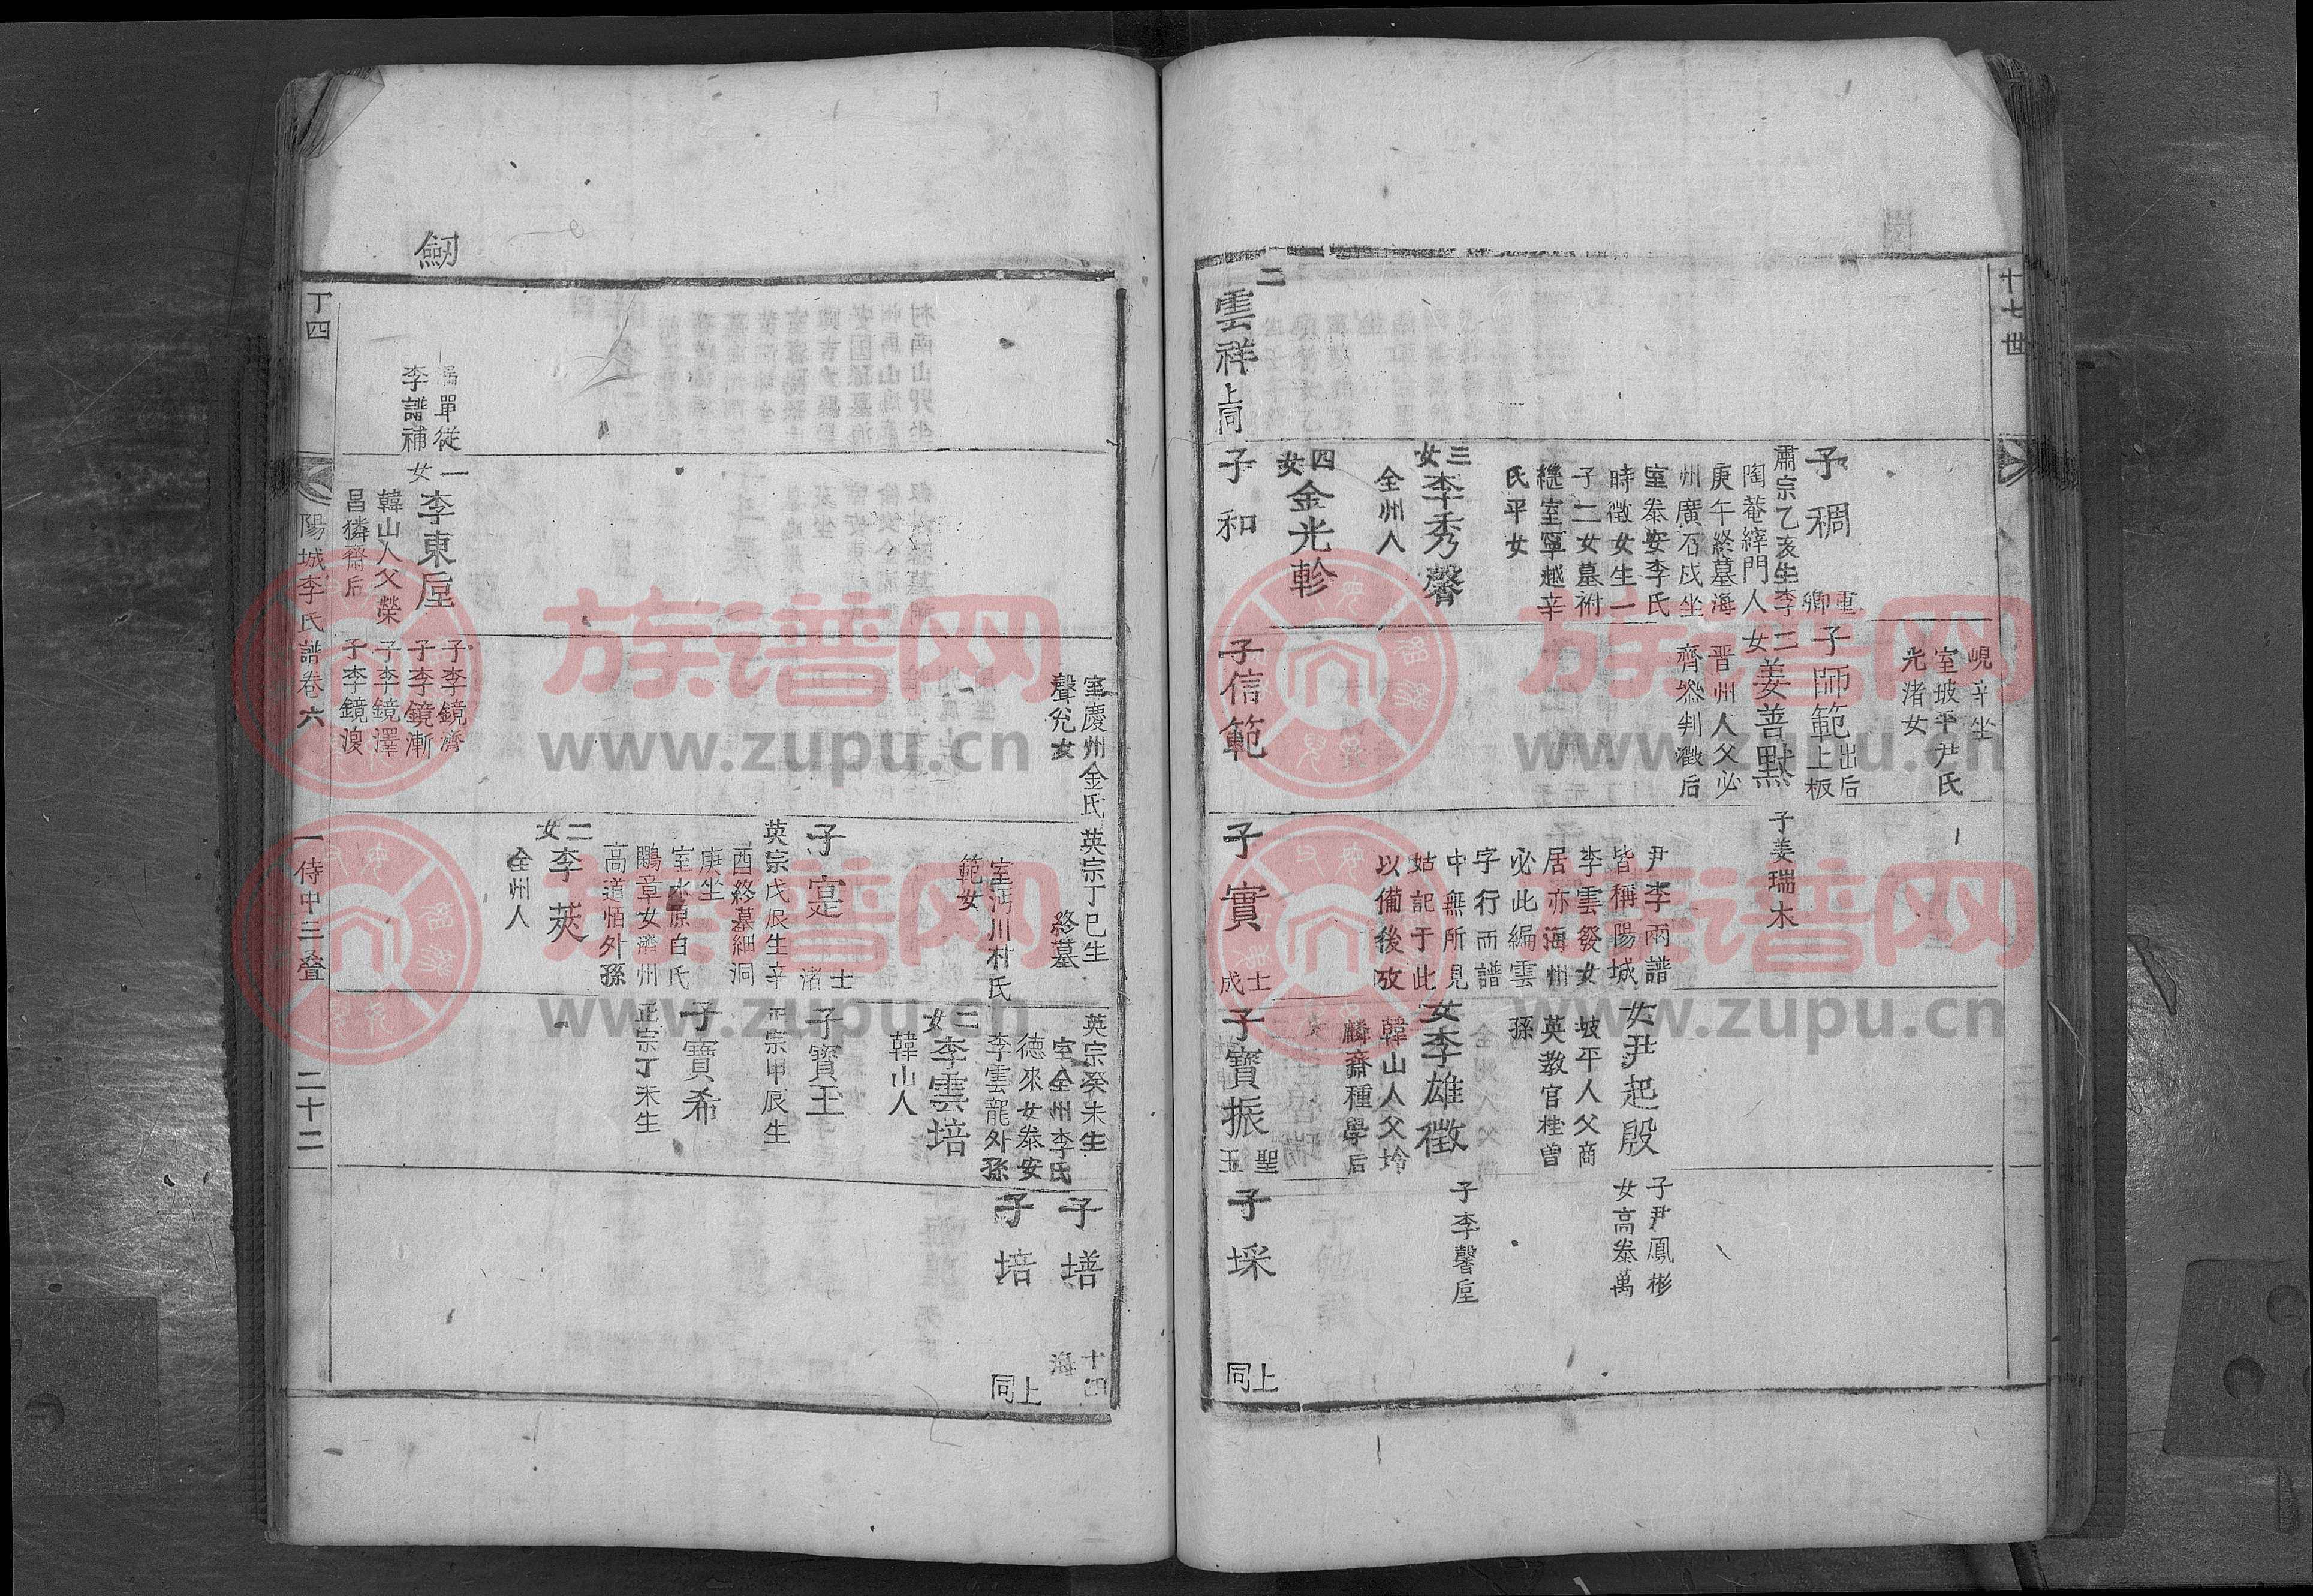 十七世
峴辛坐
室坡平尹氏
光渚女
子稠
重卿
肅宗乙亥生李
陶菴緯門人
庚午終墓海
州廣石戌坐
室泰安李氏
時徵女生一
子二女墓祔
繼室寧越辛
氏平女
子師範
出后上板
二女姜善默
晋州人父必
齊叅判瀓后
子姜瑞木
三女李秀馨
全州人
四女金光軫
尹李兩譜
皆稱陽城
李雲發女
居亦海州
必此編雲
字行而譜
中無所見
姑記于此
以備後攷
女尹起殷
坡平人父商
英教官桂曾
孫
子尹鳳彬
女高泰萬
女李雄徵
韓山人父坽
麟齋種學后
子李馨垕
二
雲祥
上同
子和
子信範
子實
士成
子寶振
聖玉
子埰
上同
室慶州金氏
聲兌女
英宗丁巳生
終墓
室沔川朴氏
範女
英宗癸未生
室全州李氏
德來女泰安
李雲龍外孫
子墡
子培
上同
三女李雲培
韓山人
子寔
士渚
英宗戊辰生辛
酉終墓細洞
庚坐
室水原白氏
鵬章女濟州
高道怕外孫
子寶玉
正宗甲辰生
子寶希
正宗丁未生
二女李莢
全州人
劒
單從
李譜補
一女李東垕
韓山人父榮
昌獜齋后
子李鏡濟
子李鏡漸
子李鏡澤
子李鏡溴
丁四
陽城李氏譜卷六
一侍中三叠
二十二
族谱网
www.zupu.cn
族谱网
www.zupu.cn
族谱网
www.zupu.cn
族谱网
www.zupu.cn